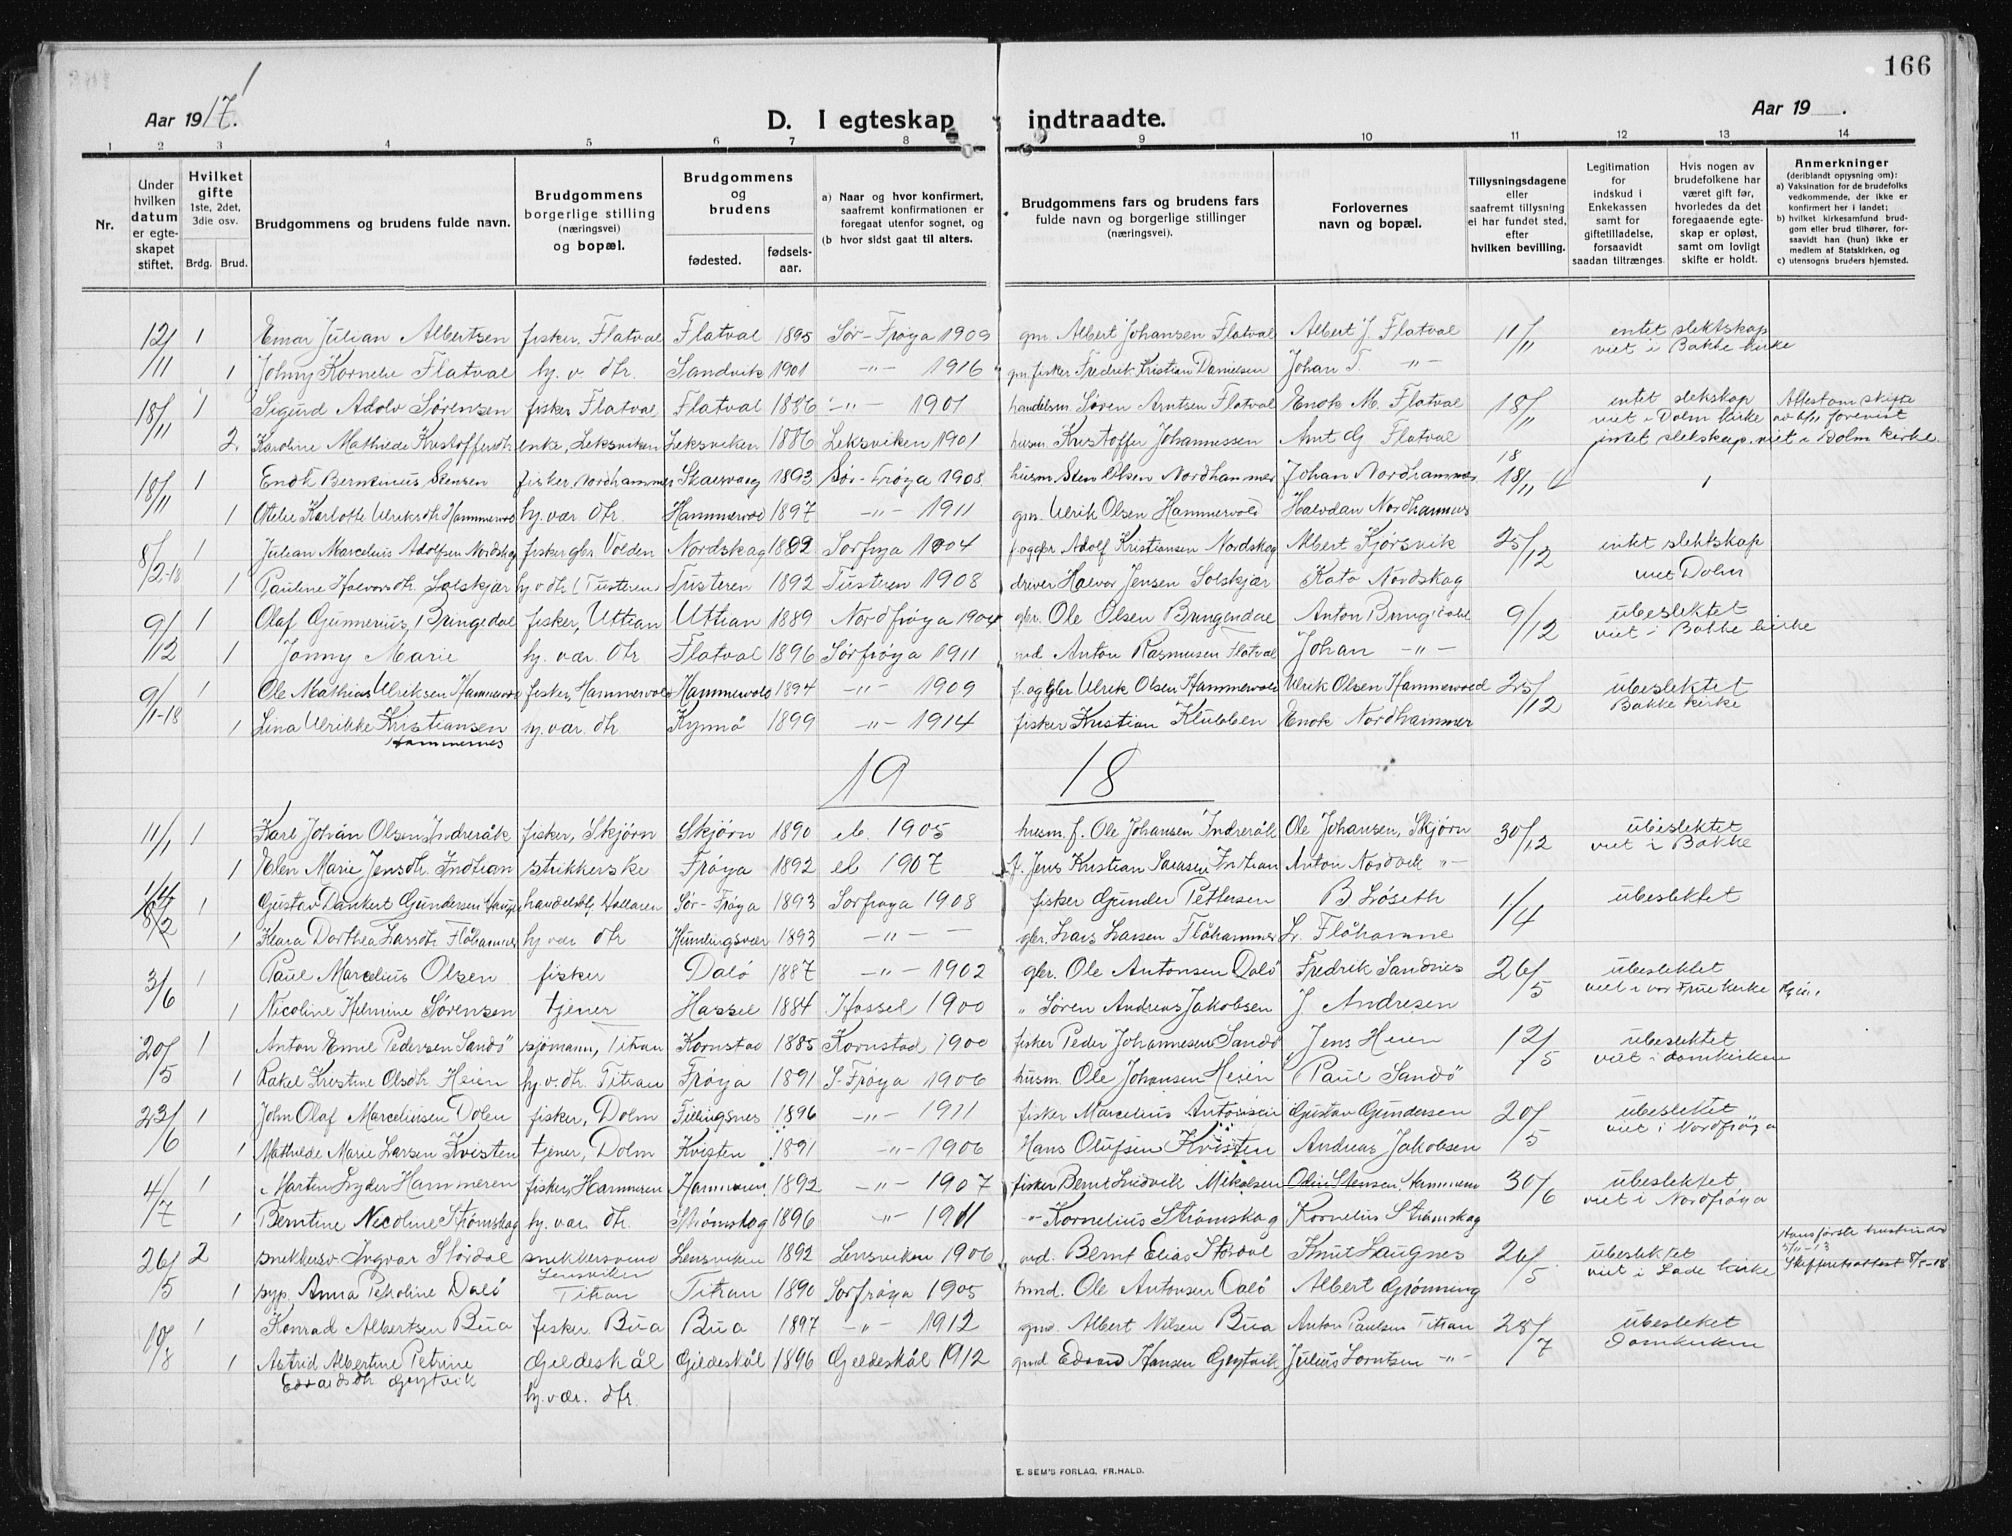 166
Aar 1917.
D. I egteskap indtraadte.
Aar 19 .
1 2 3 4 5 6 7 8 9 10 11 12 13 14
Nr.
Under hvilken datum er egteskapet stiftet.
Hvilket gifte 1ste, 2det, 3die osv.
Brdg. Brud.
Brudgommens og brudens fulde navn.
Brudgommens borgerlige stilling (næringsvei) og bopæl.
Brudgommens og brudens
fødested. fødsels-aar.
a) Naar og hvor konfirmert, saafremt konfirmationen er foregaat utenfor sognet, og
(b hvor sidst gaat til alters.
Brudgommens fars og brudens fars fulde navn og borgerlige stillinger (næringsvei).
Forlovernes navn og bopæl.
Tillysningsdagene eller saafremt tillysning ei har fundet sted, efter hvilken bevilling.
Legitimation for indskud i Enkekassen samt for giftetilladelse, forsaavidt saadan tiltrænges.
Hvis nogen av brudefolkene har været gift før, hvorledes da det foregaaende egteskap er opløst, samt om lovligt skifte er holdt.
Anmerkninger (deriblandt oplysning om):
a) Vaksination for de brudefolks vedkommende, der ikke er konfirmert her i landet;
b) hvilket kirkesamfund brudgom eller brud tilhører, forsaavidt han (hun) ikke er medlem av Statskirken, og
c) utensogns bruders hjemsted.
12/11 1 Einar Julian Albertsen fisker, Flatval Flatval 1895 Sør-Frøya 1909 gm. Albert Johansen Flatval Albert J. Flatval 11/11 intet slektskap viet i Bakke kirke
1 Johny Kornelie Flatval hj. v. dtr. Sandvik 1901 -"- 1916 gm. fisker Fredrik Kristian Danielsen Johan T. -"-
18/11 1 Sigurd Adolv Sørensen fisker Flatval Flatval 1886 -"- 1901 handelsm. Søren Arntsen Flatval Enok M. Flatval 18/11 intet slekskap viet i Dolm kirke Attest om skifte forevist
2. Karoline Mathilde Kristoffersdtr. enke, Leksviken Leksviken 1886 Leksviken 1901 husm. Kristoffer Johannessen Arnt Flatval intet slekskap, viet i Dolm kirke.
18/11 1 Enok Berntinus Stensen fisker, Nordhammer Skarsvaag 1893 Sør-Frøya 1908 husm. Sten Olsen Nordhammer Johan Nordhammer 18/11
1 Otelie Karlotte Ulriksdtr. Hammervold hj. vær. dtr. Hammervold 1897 -"- 1911 gm. Ulrik Olsen Hammervold Halvdan Nordhammer
8/2-18 1 Julian Marcelius Adolfsen Nordskag fisker gbr. Volden Nordskag 1882 Sørfrøya 1904 f. og gbr. Adolf Kristiansen Nordskag Albert Kjørsvik 25/12 intet slektskap
1 Pauline Halvorsdtr. Solskjær hj v dtr (Tusteren) Tusteren 1892 Tusteren 1908 Halvor Jensen Solskjær Kato Nordskag viet Dolm
9/12 1 Olaf Gunnerius Bringedal fisker, Uttian Uttian 1889 Nordfrøya 1904 gbr. Ole Olsen Bringedal Anton Bringdal 9/12 ubeslektet viet i Bakke kirke
1 Jonny Marie hj. vær. dtr. Flatval 1896 Sørfrøya 1911 Anton Rasmussen Flatval Johan -"-
9/1-18 1 Ole Mathias Ulriksen Hammervold fisker, Hammervold Hammervold 1894 -"- 1909 f. og gbr Ulrik Olsen Hammervold Ulrik Olsen Hammervold 25/12 ubeslektet Bakke kirke
1 Lina Ulrikke Kristiansen hj. vær. dtr Kynnø 1899 -"- 1914 fisker Kristian Klubben Enok Nordhammer
Hammernes
19 18
11/1 1 Karl Johan Olsen Indreråk fisker, Skjørn Skjørn 1890 1905 husm. f. Ole Johansen Indreråk Ole Johansen, Skjørn 30/12 ubeslektet viet i Bakke
1 Elen Marie Jensdtr. Indtian strikkerske Frøya 1892 1907 f. Jens Kristian Indtian Anton Nordvik -"-
1 Gustav Dankert Gundersen handelsbtj Hallaren Sør-Frøya 1893 Sørfrøya 1908 fisker Gunder Pettersen B Løseth 1/4 ubeslektet
1 Klara Dorthea Larsdtr Flåhammer hj vær dtr Humlingsvær 1893 -"- gbr. Lars Larsen Flåhammer L. Flåhamme
3/6 1 Paul Marcelius Olsen fisker Dalø 1887 -"- 1902 gbr. Ole Antonsen Dalø Fredrik Sandnes 26/5 ubeslektet viet i vor Frue kirke
1 Nicoline Helmine Sørensen tjener Hassel 1884 Hassel 1900 " Søren Andreas Jakobsen J. Andresen
20/5 1 Anton Emil Pedersen Sandø sjømann, Titran Kornstad 1885 Kornstad 1900 fisker Peder Johannesen Sandø Jens Heien 12/5 ubeslektet viet i domkirken
1 Rakel Kristine Olsdtr Heien hj. v. dtr. Titran Frøya 1891 S-Frøya 1906 husm. Ole Johansen Heien Paul Sandø
23/6 1 John Olaf Marceliussen Dolm fisker, Dolm Fillingsnes 1896 -"- 1911 fisker Marcelius Antonsen Gustav Gundersen 20/5 ubeslektet viet i Nordfrøya
1 Mathilde Marie Larsen Kvisten tjener, Dolm Kvisten 1891 -"- 1906 Hans Olufsen Kvisten Andreas Jakobsen
4/7 1 Martin Lyder Hammeren fisker, Hammeren Hammeren 1892 -"- 1907 fisker Bernt Ludvik Mikalsen Olin Stensen Hammeren 30/6 ubeslektet viet i Nordfrøya
1 Berntine Nicoline Strømskag hj. vær. dtr. Strømskag 1896 -"- 1911 -"- Kornelius Strømskag Kornelius Strømskag
26/5 2 snekkersv Ingvar Størdal snekkersvend Lensviken Lensviken 1892 Lensviken 1906 Bernt Elias Størdal Knut Laugnes 26/5 ubeslektet viet i Lade kirke Hans første hustru død 5/11-13 Skifteretsattest 8/5-18
1 Anna Petroline Dalø Titran Titran 1890 Sørfrøya 1905 Ole Antonsen Dalø Albert Grønning
10/8 1 Konrad Albertsen Bua fisker Bua Bua 1897 -"- 1912 gmd. Albert Nilsen Bua Anton Paulsen Titran 28/7 ubesleket Domkirken
1 Astrid Albertine Petrine Gildeskål Gildeskål 1896 Gildeskål 1912 gmd Edvard Hansen Gjytvik Julius Lorntsen -"-
Edvardsdtr Gjytvik hj. vær. dtr.
E. SEM'S FORLAG, FR.HALD.